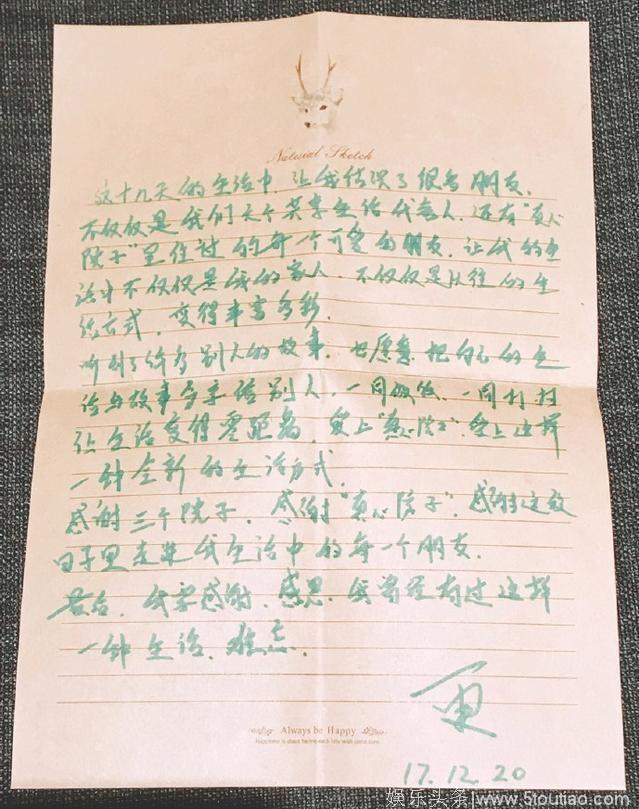 Natural Sketch
这十几天的生活中，让我结识了很多朋友，
不仅仅是我们六个共享生活代言人，还有“真心
院子”里住过的每一个可爱的朋友，让我的生
活中不仅仅是我的家人，不仅仅是以往的生
活方式，变得丰富多彩。
听到了许多别人的故事，也愿意把自己的生
活与故事分享给别人，一同做饭，一同打扫
让生活变得零距离，爱上“真心院子”，爱上这样
一种全新的生活方式。
感谢三个院子，感谢“真心院子”，感谢这段
日子里走进我生活中的每一个朋友。
最后，我要感谢，感恩，我曾经有过这样
一种生活，难忘。
Always be Happy
17.12.20
娱乐头条/www.5toutiao.com